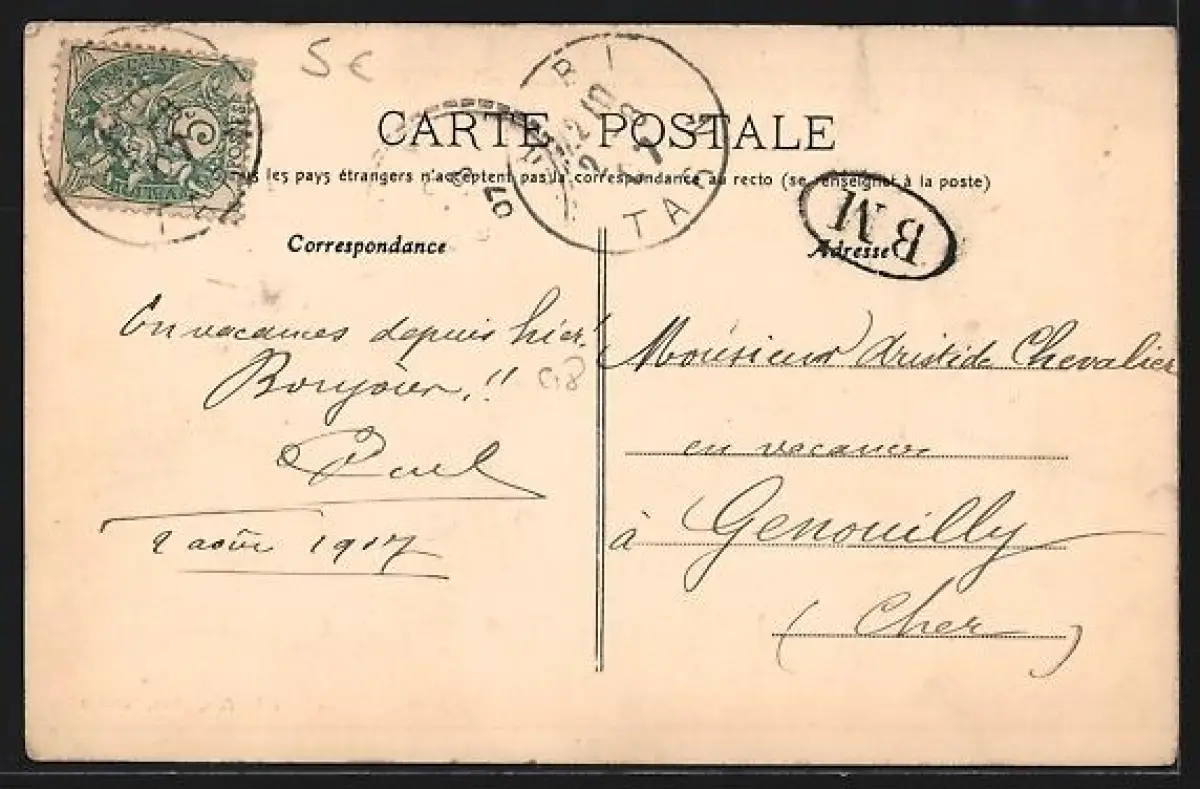 5 €
CARTE POSTALE
les pays étrangers n'acceptent pas la correspondance au recto (se renseigner à la poste)
Correspondance
Adresse
B M
07
5c
En vacances depuis hier!
Bonjour!!
Paul
2 août 1907
Monsieur Aristide Chevalier
en vacances
à Genouilly
(Cher)